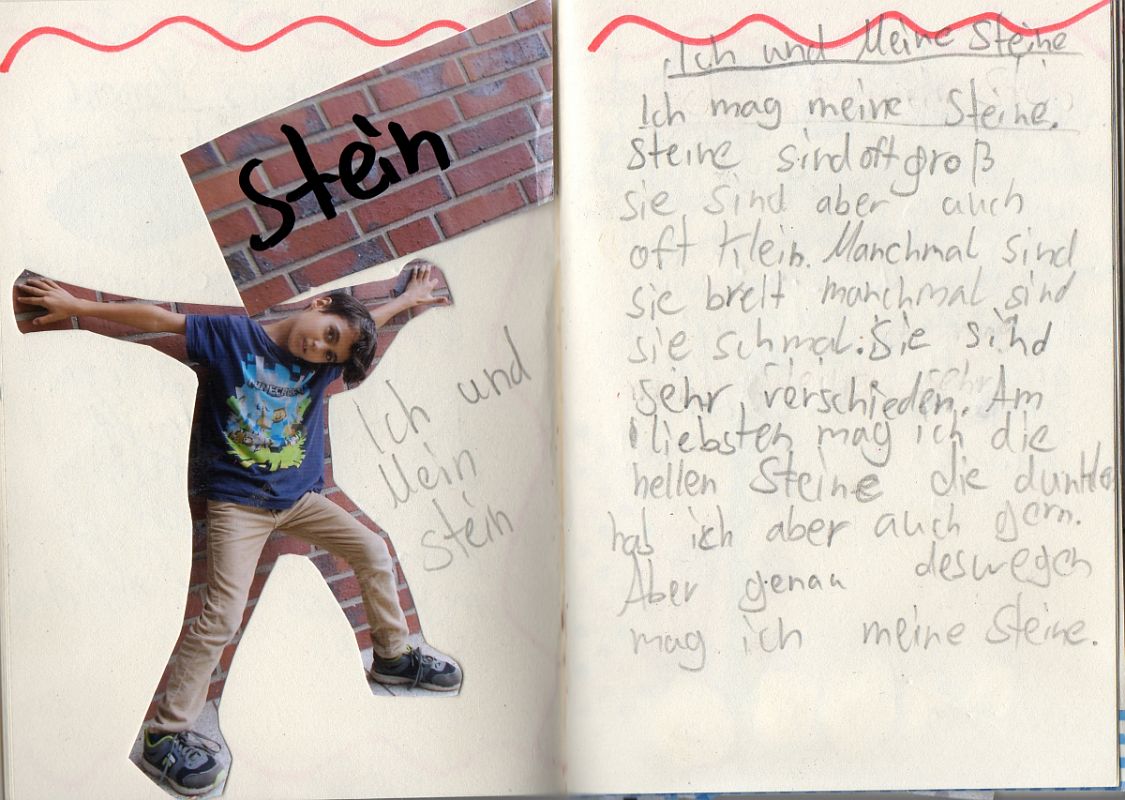 Stein
MINECRAFT
Ich und
Mein
stein
Ich und Meine Steine
Ich mag meine Steine.
Steine sind oft groß
sie sind aber auch
oft klein. Manchmal sind
sie breit manchmal sind
sie schmal. Sie sind
sehr verschieden. Am
liebsten mag ich die
hellen Steine die dunklen
hab ich aber auch gern.
Aber genau deswegen
mag ich meine Steine.